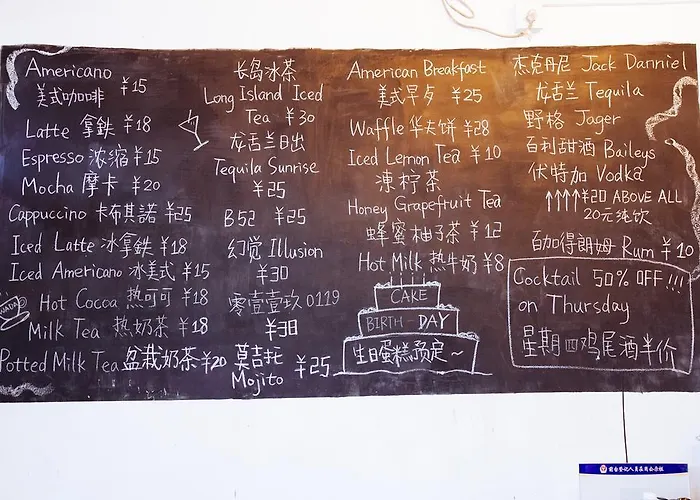 Americano
美式咖啡 ¥15
Latte 拿鉄 ¥18
Espresso 浓缩 ¥15
Mocha 摩卡 ¥20
Cappuccino 卡布其諾 ¥25
Iced Latte 冰拿鉄 ¥18
Iced Americano 冰美式 ¥15
Hot Cocoa 热可可 ¥18
Milk Tea 热奶茶 ¥18
Potted Milk Tea 盆栽奶茶 ¥20
长岛冰茶
Long Island Iced
Tea ¥30
龙舌兰日出
Tequila Sunrise
¥25
B52 ¥25
幻觉 Illusion
¥30
零壹壹玖 0119
¥30
莫吉托
Mojito ¥25
American Breakfast
美式早歺 ¥25
Waffle 华夫饼 ¥28
Iced Lemon Tea ¥10
凍柠茶
Honey Grapefruit Tea
蜂蜜柚子茶 ¥12
Hot Milk 热牛奶 ¥8
CAKE
BIRTH-DAY
生日蛋糕预定~
杰克丹尼 Jack Danniel
龙舌兰 Tequila
野格 Jager
百利甜酒 Baileys
伏特加 Vodka
↑↑↑↑ ¥20 ABOVE ALL
20元纯饮
百加得朗姆 Rum ¥10
Cocktail 50% OFF!!!
on Thursday
星期四鸡尾酒半价